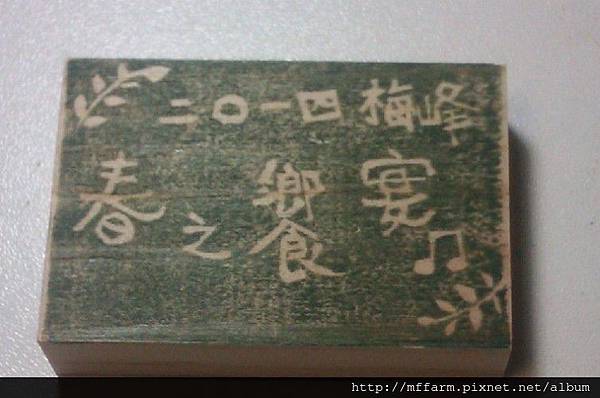 二〇一四梅峰
春之饗宴
http://mffarm.pixnet.net/album